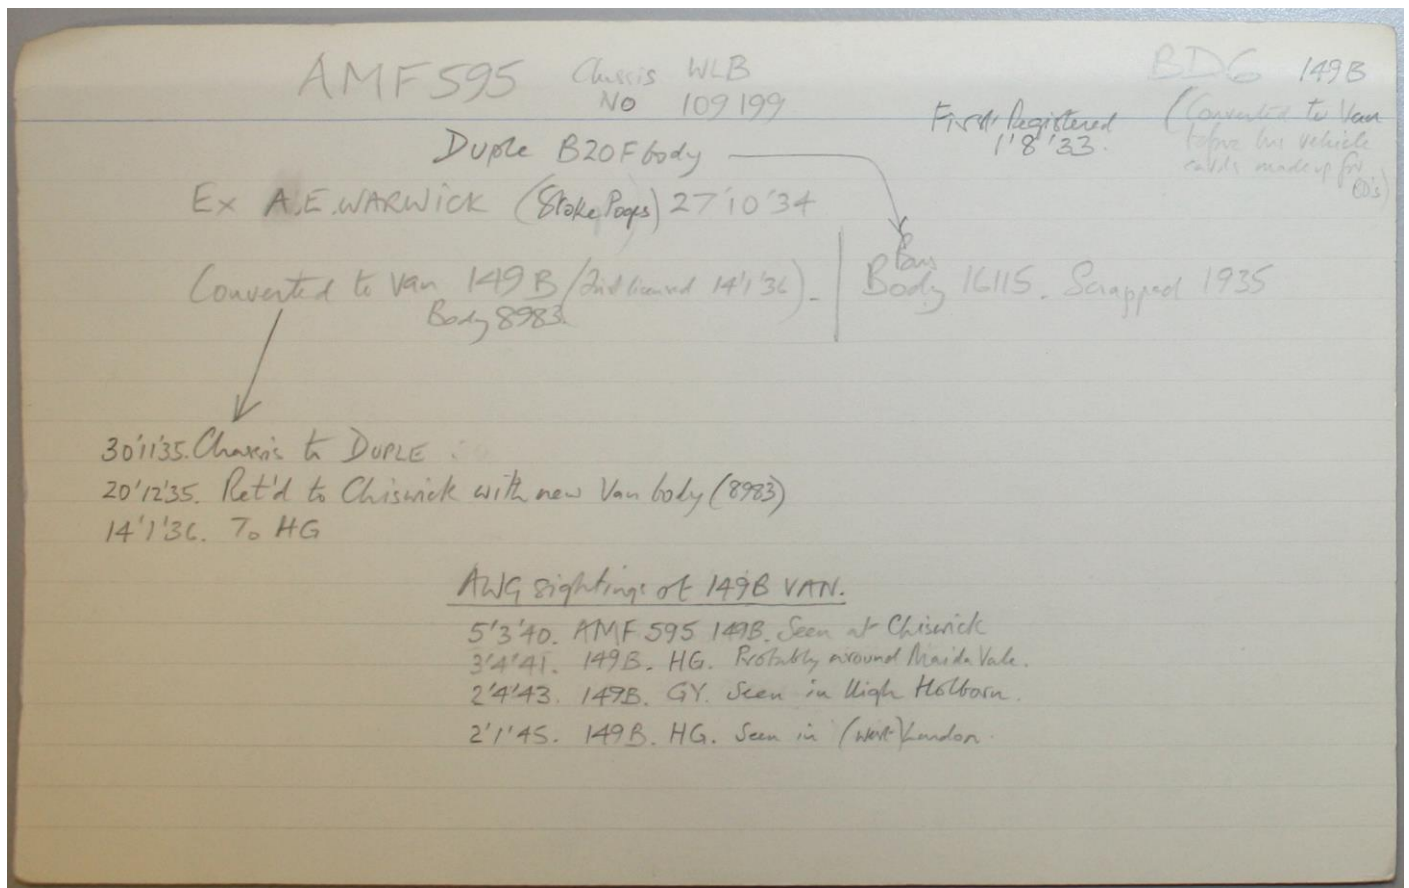 AMF 595 Chassis WLB BD6 149B
No 109199
First Registered (Converted to Van
1'8'33. before bus vehicle
cards made up for
BD's)
Duple B20F body
Ex A.E. WARWICK (Stoke Poges) 27'10'34
Converted to Van 149B (2nd licensed 14'1'36).
Body 8983.
Bus
Body 16115. Scrapped 1935
30'11'35. Chassis to DUPLE
20'12'35. Ret'd to Chiswick with new Van body (8983)
14'1'36. To HG
AWG sightings of 149B VAN.
5'3'40. AMF 595 149B. Seen at Chiswick
3'4'41. 149B. HG. Probably around Maida Vale.
2'4'43. 149B. GY. Seen in High Holborn.
2'1'45. 149B. HG. Seen in (West) London.